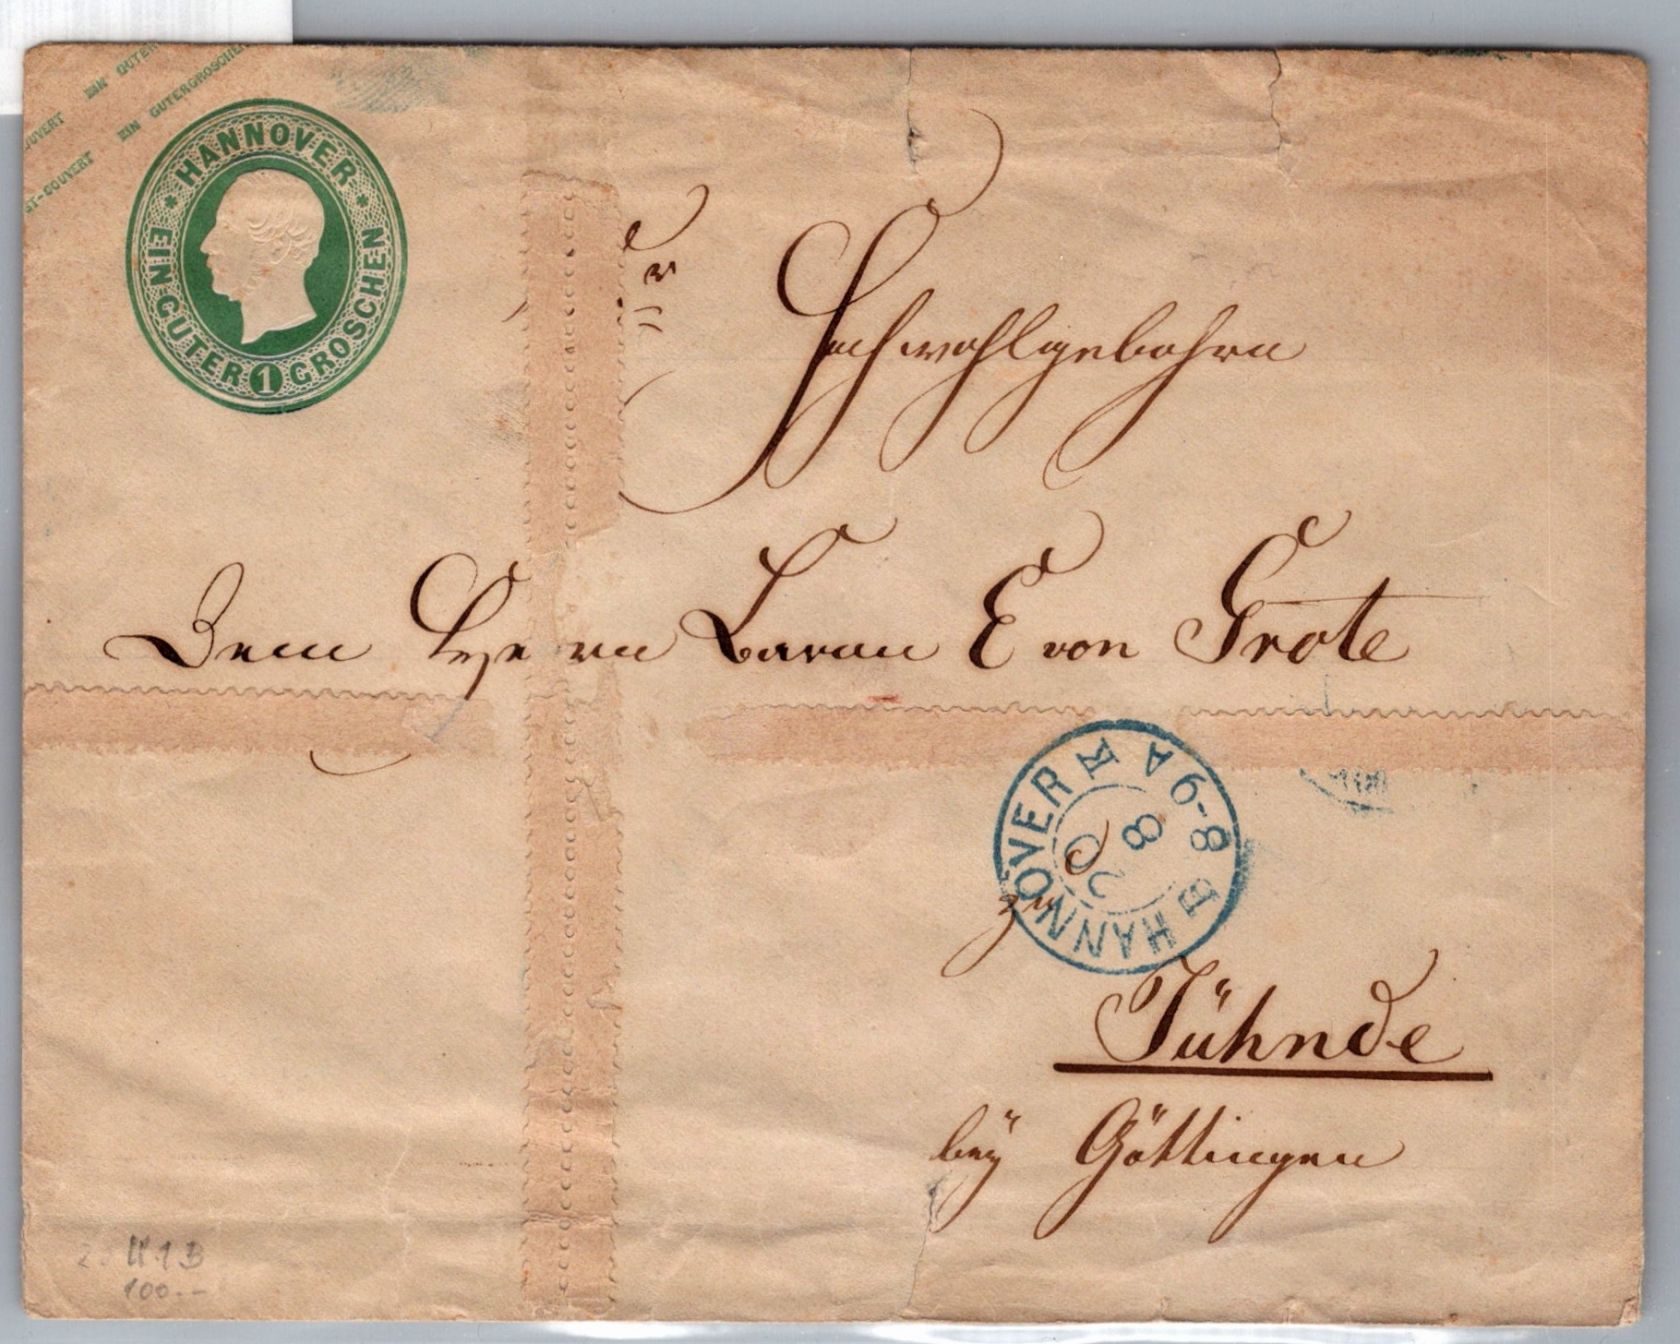 EIN GUTER
COUVERT EIN GUTERGROSCHEN
ST-COUVERT
* HANNOVER *
EIN GUTER 1 GROSCHEN
Sr
Hochwohlgebohrn
Dem Herrn Baron E von Grote
HANNOVER
A 6-8 B
20
8
zu
Jühnde
bey Göttingen
U 1 B
100.--